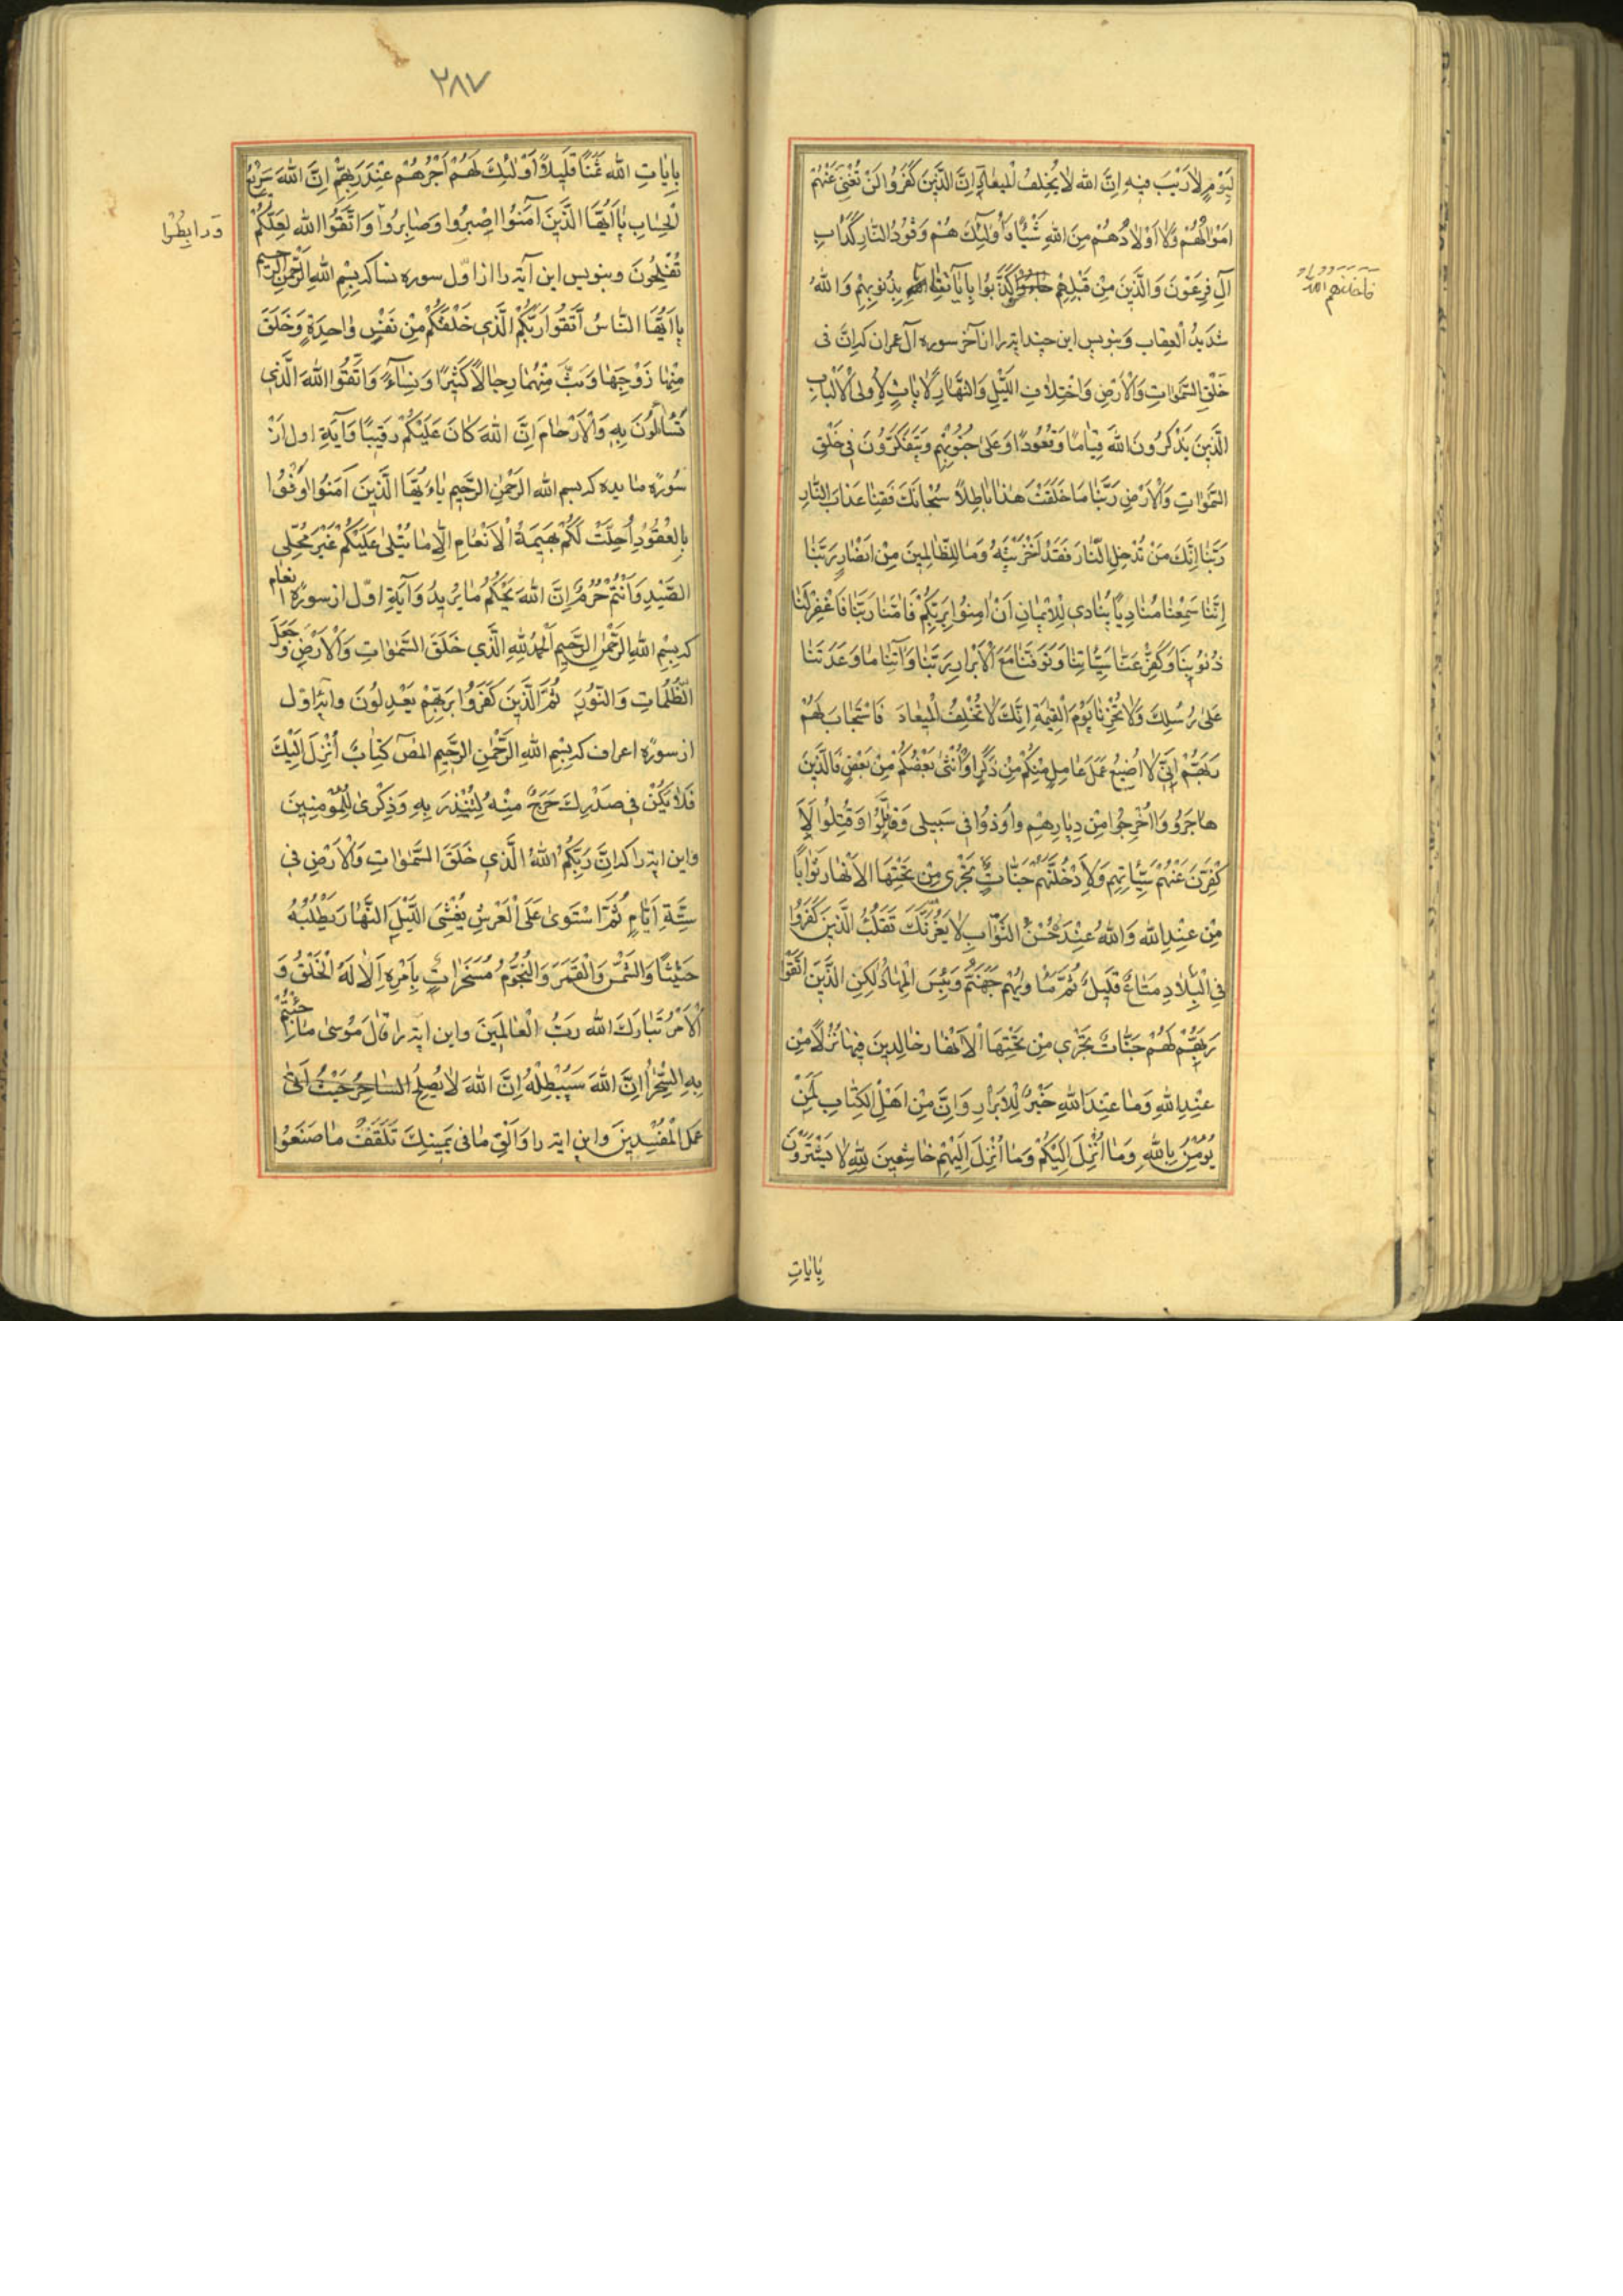 لِيَوْمٍ لاٰرَيْبَ فيهِ اِنَّ الله لاٰ يُخْلِفُ الْميعٰادَ اِنَّ الَّذينَ كَفَرُوا لَنْ تُغْنِىَ عَنْهُمْ
اَمْوٰالُهُمْ وَلاٰ اَوْلاٰدُهُمْ مِنَ اللهِ شَيْئًا وَاُولٰئِكَ هُمْ وَقُودُ النّٰارِ كَدَاْبِ
آلِ فِرْعَوْنَ وَالَّذينَ مِنْ قَبْلِهِمْ كَذَّبُوا بِاٰيٰاتِنٰا بِذُنُوبِهِمْ وَاللهُ
فَاَخَذَهُم اللهُ
شَديدُ الْعِقٰابِ وبنويس اين چند ايه را از آخر سوره آل عمران كه اِنَّ فى
خَلْقِ السَّمٰوٰاتِ وَالْاَرْضِ وَاخْتِلاٰفِ اللَّيْلِ وَالنَّهٰارِ لَاٰيٰاتٍ لِاُولِى الْاَلْبٰابِ
الَّذينَ يَذْكُرُونَ اللهَ قِيٰامًا وَقُعُودًا وَعَلىٰ جُنُوبِهِمْ وَيَتَفَكَّرُونَ فى خَلْقِ
السَّمٰوٰاتِ وَالْاَرْضِ رَبَّنٰا مٰا خَلَقْتَ هٰذٰا بٰاطِلاً سُبْحٰانَكَ فَقِنٰا عَذٰابَ النّٰارِ
رَبَّنٰا اِنَّكَ مَنْ تُدْخِلِ النّٰارَ فَقَدْ اَخْزَيْتَهُ وَمٰا لِلظّٰالِمينَ مِنْ اَنْصٰارٍ رَبَّنٰا
اِنَّنٰا سَمِعْنٰا مُنٰادِيًا يُنٰادى لِلْايمٰانِ اَنْ اٰمِنُوا بِرَبِّكُمْ فَاٰمَنّٰا رَبَّنٰا فَاغْفِرْلَنٰا
ذُنُوبَنٰا وَكَفِّرْ عَنّٰا سَيِّئٰاتِنٰا وَتَوَفَّنٰا مَعَ الْاَبْرٰارِ رَبَّنٰا وَآتِنٰا مٰا وَعَدْتَنٰا
عَلىٰ رُسُلِكَ وَلاٰ تُخْزِنٰا يَوْمَ الْقِيٰمَةِ اِنَّكَ لاٰ تُخْلِفُ الْميعٰادَ فَاسْتَجٰابَ لَهُمْ
رَبُّهُمْ اَنّى لاٰ اُضيعُ عَمَلَ عٰامِلٍ مِنْكُمْ مِنْ ذَكَرٍ اَوْ اُنْثىٰ بَعْضُكُمْ مِنْ بَعْضٍ فَالَّذينَ
هٰاجَرُوا وَاُخْرِجُوا مِنْ دِيٰارِهِمْ وَاُوذُوا فى سَبيلى وَقٰاتَلُوا وَقُتِلُوا لَاُ
كَفِّرَنَّ عَنْهُمْ سَيِّئٰاتِهِمْ وَلَاُدْخِلَنَّهُمْ جَنّٰاتٍ تَجْرى مِنْ تَحْتِهَا الْاَنْهٰارُ ثَوٰابًا
مِنْ عِنْدِ اللهِ وَاللهُ عِنْدَهُ حُسْنُ الثَّوٰابِ لاٰ يَغُرَّنَّكَ تَقَلُّبُ الَّذينَ كَفَرُوا
فِى الْبِلاٰدِ مَتٰاعٌ قَليلٌ ثُمَّ مَاْوٰيهُمْ جَهَنَّمُ وَبِئْسَ الْمِهٰادُ لٰكِنِ الَّذينَ اتَّقَوْا
رَبَّهُمْ لَهُمْ جَنّٰاتٌ تَجْرى مِنْ تَحْتِهَا الْاَنْهٰارُ خٰالِدينَ فيهٰا نُزُلًا مِنْ
عِنْدِ اللهِ وَمٰا عِنْدَ اللهِ خَيْرٌ لِلْاَبْرٰارِ وَاِنَّ مِنْ اَهْلِ الْكِتٰابِ لَمَنْ
يُؤْمِنُ بِاللهِ وَمٰا اُنْزِلَ اِلَيْكُمْ وَمٰا اُنْزِلَ اِلَيْهِمْ خٰاشِعينَ لِلّٰهِ لاٰ يَشْتَرُونَ
بِاٰيٰاتِ
٢٨٧
بِاٰيٰاتِ اللهِ ثَمَنًا قَليلاً اُولٰئِكَ لَهُمْ اَجْرُهُمْ عِنْدَ رَبِّهِمْ اِنَّ اللهَ سَريعُ
الْحِسٰابِ يٰااَيُّهَا الَّذينَ آمَنُوا اصْبِرُوا وَصٰابِرُوا وَاتَّقُوا اللهَ لَعَلَّكُمْ
وَرابِطُوا
تُفْلِحُونَ وبنويس اين آيه را از اوّل سوره نسا كه بِسْمِ اللهِ الرَّحْمٰنِ الرَّحيمِ
يٰااَيُّهَا النّٰاسُ اتَّقُوا رَبَّكُمُ الَّذى خَلَقَكُمْ مِنْ نَفْسٍ وٰاحِدَةٍ وَخَلَقَ
مِنْهٰا زَوْجَهٰا وَبَثَّ مِنْهُمٰا رِجٰالاً كَثيرًا وَنِسٰاءً وَاتَّقُوا اللهَ الَّذى
تَسٰاءَلُونَ بِهِ وَالْاَرْحٰامَ اِنَّ اللهَ كٰانَ عَلَيْكُمْ رَقيبًا وَآيَةِ اول از
سُورَه مايده كه بسم الله الرَّحْمٰنِ الرَّحيمِ يٰااَيُّهَا الَّذينَ آمَنُوا اَوْفُوا
بِالْعُقُودِ اُحِلَّتْ لَكُمْ بَهيمَةُ الْاَنْعٰامِ اِلّٰا مٰا يُتْلىٰ عَلَيْكُمْ غَيْرَ مُحِلِّى
الصَّيْدِ وَاَنْتُمْ حُرُمٌ اِنَّ اللهَ يَحْكُمُ مٰا يُريدُ وَآيَةِ اوّل از سورَه انعام
كه بِسْمِ اللهِ الرَّحْمٰنِ الرَّحيمِ اَلْحَمْدُ لِلّٰهِ الَّذى خَلَقَ السَّمٰوٰاتِ وَالْاَرْضَ وَجَعَلَ
الظُّلُمٰاتِ وَالنُّورَ ثُمَّ الَّذينَ كَفَرُوا بِرَبِّهِمْ يَعْدِلُونَ وايه اوّل
از سورَه اعراف كه بِسْمِ اللهِ الرَّحْمٰنِ الرَّحيمِ المص كِتٰابٌ اُنْزِلَ اِلَيْكَ
فَلاٰ يَكُنْ فى صَدْرِكَ حَرَجٌ مِنْهُ لِتُنْذِرَ بِهِ وَذِكْرىٰ لِلْمُؤْمِنينَ
واين ايه را كه اِنَّ رَبَّكُمُ اللهُ الَّذى خَلَقَ السَّمٰوٰاتِ وَالْاَرْضَ فى
سِتَّةِ اَيّٰامٍ ثُمَّ اسْتَوىٰ عَلَى الْعَرْشِ يُغْشِى اللَّيْلَ النَّهٰارَ يَطْلُبُهُ
حَثيثًا وَالشَّمْسَ وَالْقَمَرَ وَالنُّجُومَ مُسَخَّرٰاتٍ بِاَمْرِهِ اَلاٰ لَهُ الْخَلْقُ وَ
الْاَمْرُ تَبٰارَكَ اللهُ رَبُّ الْعٰالَمينَ واين ايه را قٰالَ مُوسىٰ مٰا جِئْتُمْ
بِهِ السِّحْرُ اِنَّ اللهَ سَيُبْطِلُهُ اِنَّ اللهَ لاٰ يُصْلِحُ السّٰاحِرُ حَيْثُ اَتىٰ
عَمَلَ الْمُفْسِدينَ واين ايه را وَاَلْقِ مٰا فى يَمينِكَ تَلْقَفْ مٰا صَنَعُوا